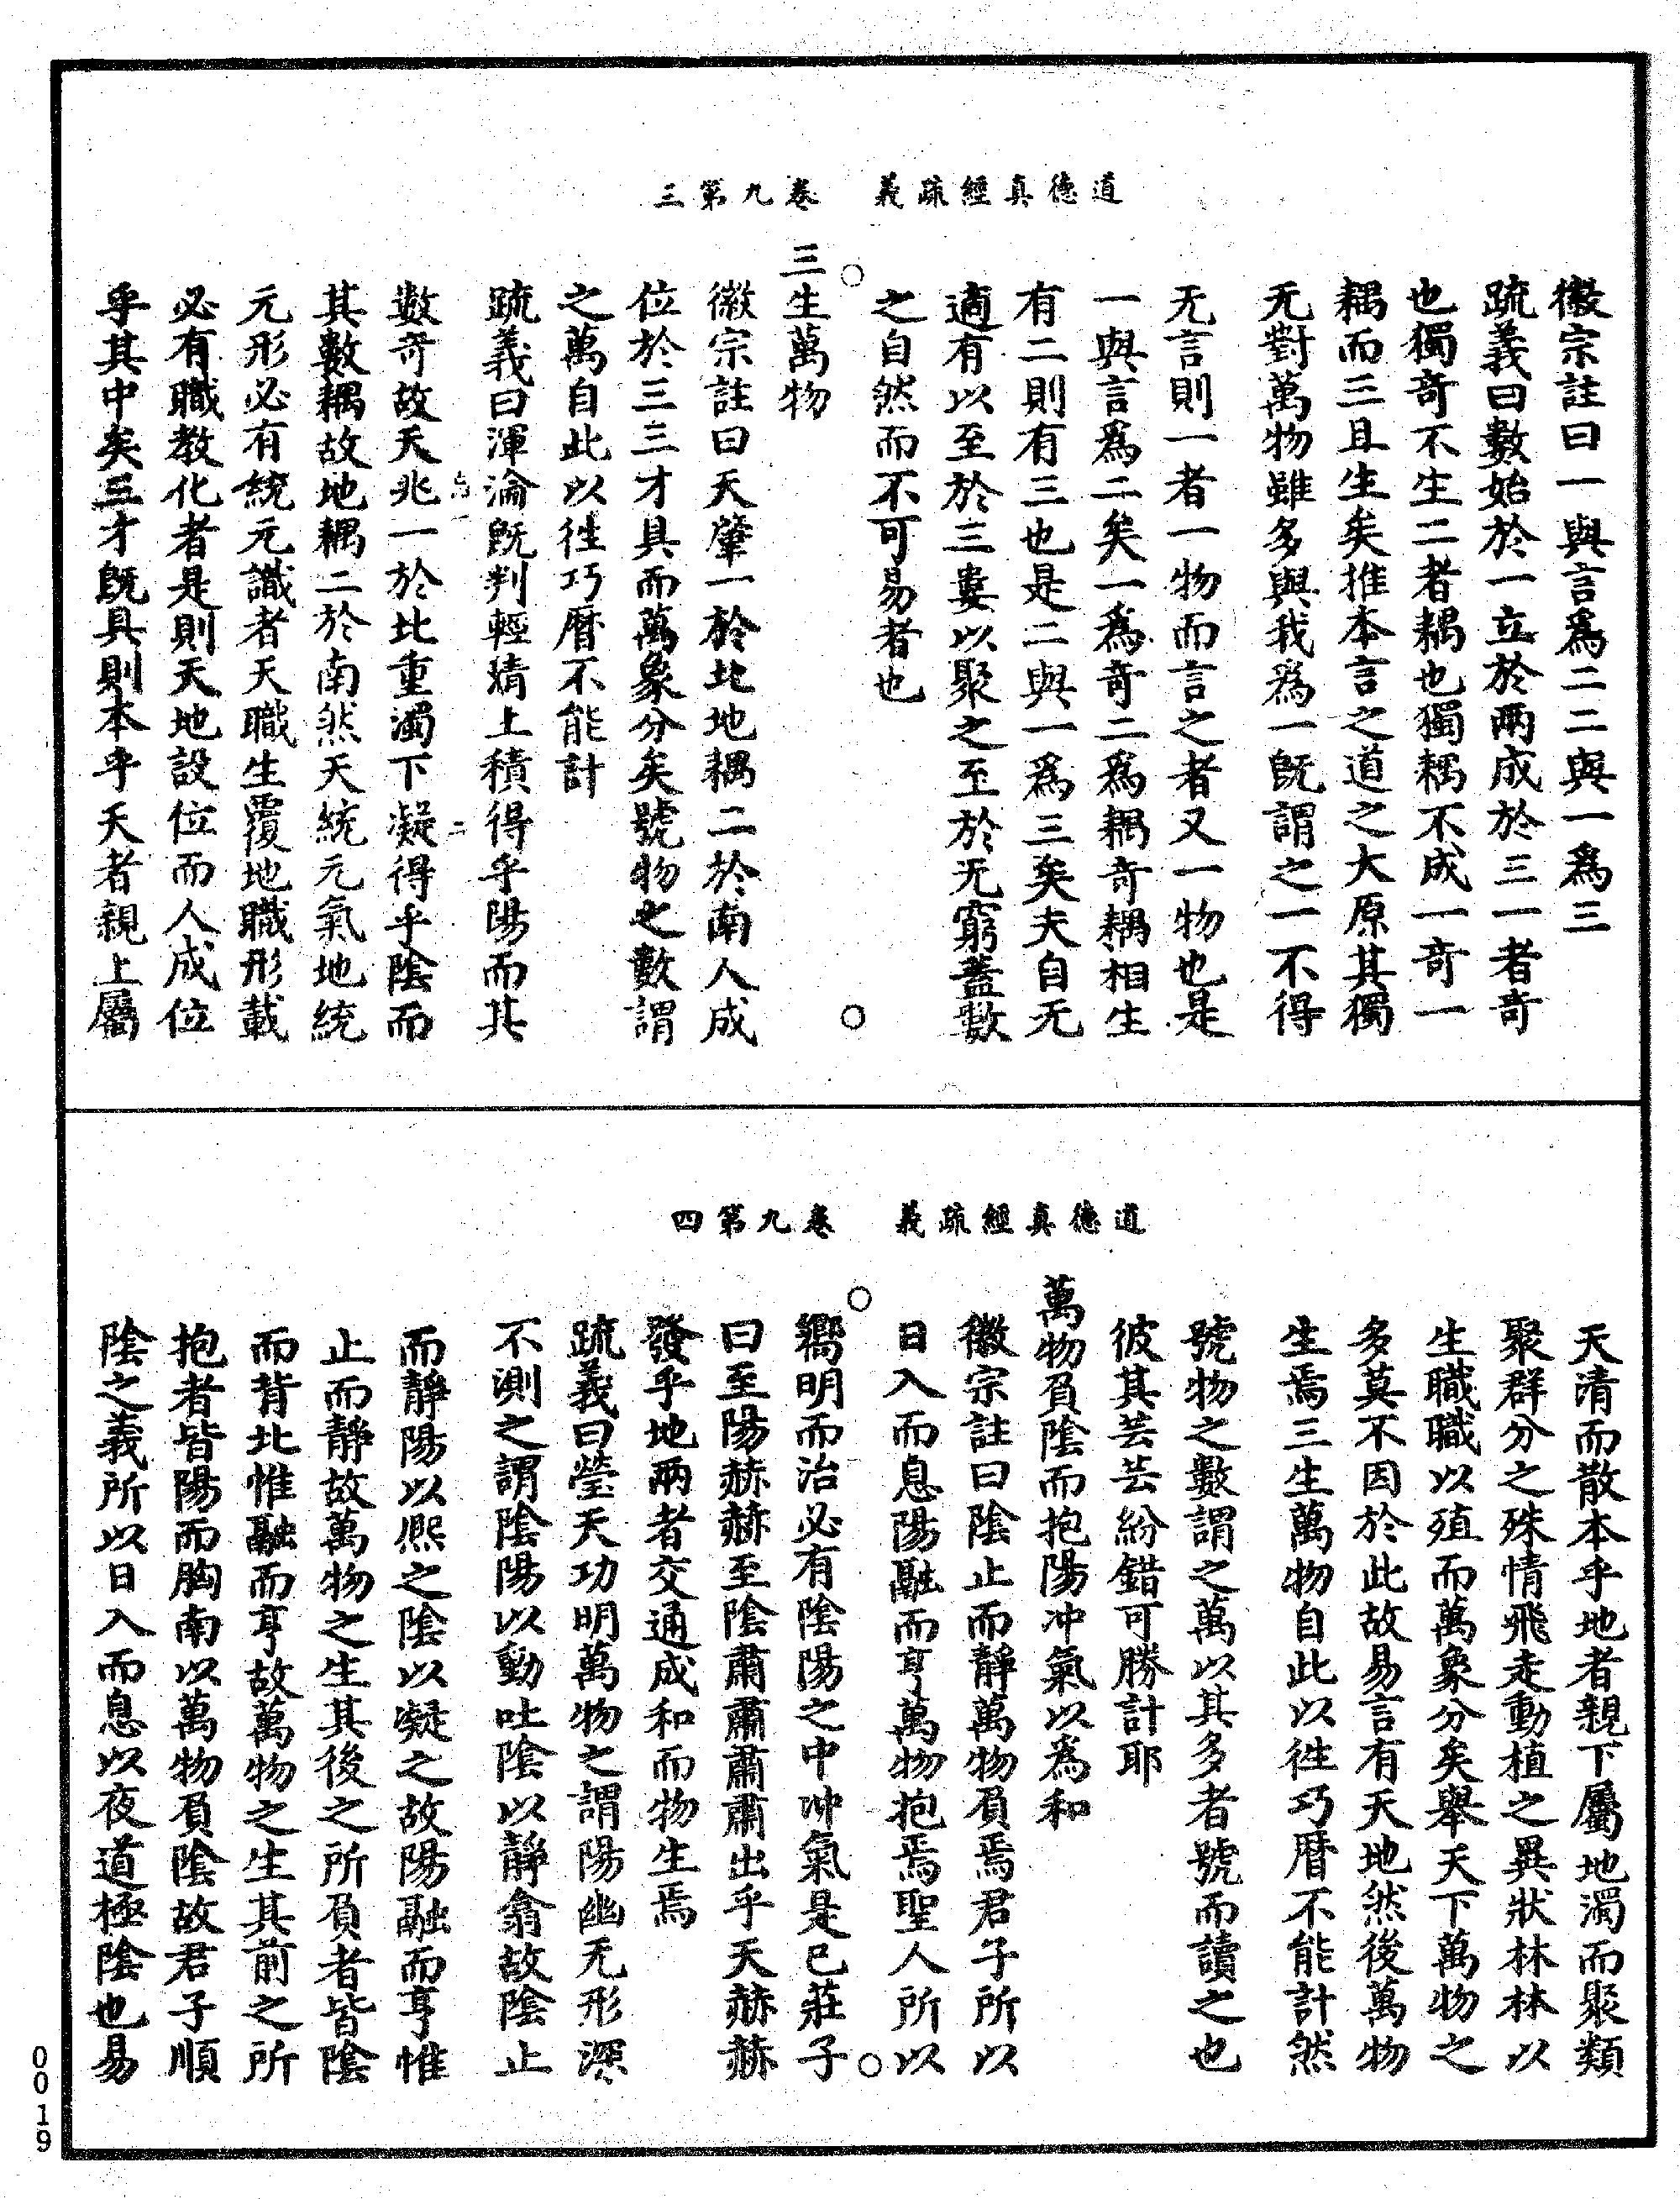 道德真經疏義　卷九第三
徽宗註曰一與言爲二二與一爲三
疏義曰數始於一立於兩成於三一者奇
也獨奇不生二者耦也獨耦不成一奇一
耦而三且生矣推本言之道之大原其獨
无對萬物雖多與我爲一旣謂之一不得
无言則一者一物而言之者又一物也是
一與言爲二矣一爲奇二爲耦奇耦相生
有二則有三也是二與一爲三矣夫自无
適有以至於三婁以聚之至於无窮蓋數
之自然而不可易者也
三生萬物
徽宗註曰天肇一於北地耦二於南人成
位於三三才具而萬象分矣號物之數謂
之萬自此以徃巧曆不能計
疏義曰渾淪旣判輕清上積得乎陽而其
數奇故天兆一於北重濁下凝得乎陰而
其數耦故地耦二於南然天統元氣地統
元形必有統元識者天職生覆地職形載
必有職教化者是則天地設位而人成位
乎其中矣三才旣具則本乎天者親上屬
道德真經疏義　卷九第四
天清而散本乎地者親下屬地濁而聚類
聚群分之殊情飛走動植之異狀林林以
生職職以殖而萬象分矣舉天下萬物之
多莫不因於此故易言有天地然後萬物
生焉三生萬物自此以徃巧曆不能計然
號物之數謂之萬以其多者號而讀之也
彼其芸芸紛錯可勝計耶
萬物負陰而抱陽冲氣以爲和
徽宗註曰陰止而靜萬物負焉君子所以
日入而息陽融而亨萬物抱焉聖人所以
嚮明而治必有陰陽之中冲氣是已莊子
曰至陽赫赫至陰肅肅肅肅出乎天赫赫
發乎地兩者交通成和而物生焉
疏義曰瑩天功明萬物之謂陽幽无形深
不測之謂陰陽以動吐陰以靜翕故陰止
而靜陽以熙之陰以凝之故陽融而亨惟
止而靜故萬物之生其後之所負者皆陰
而背北惟融而亨故萬物之生其前之所
抱者皆陽而胸南以萬物負陰故君子順
陰之義所以日入而息以夜道極陰也易
0019